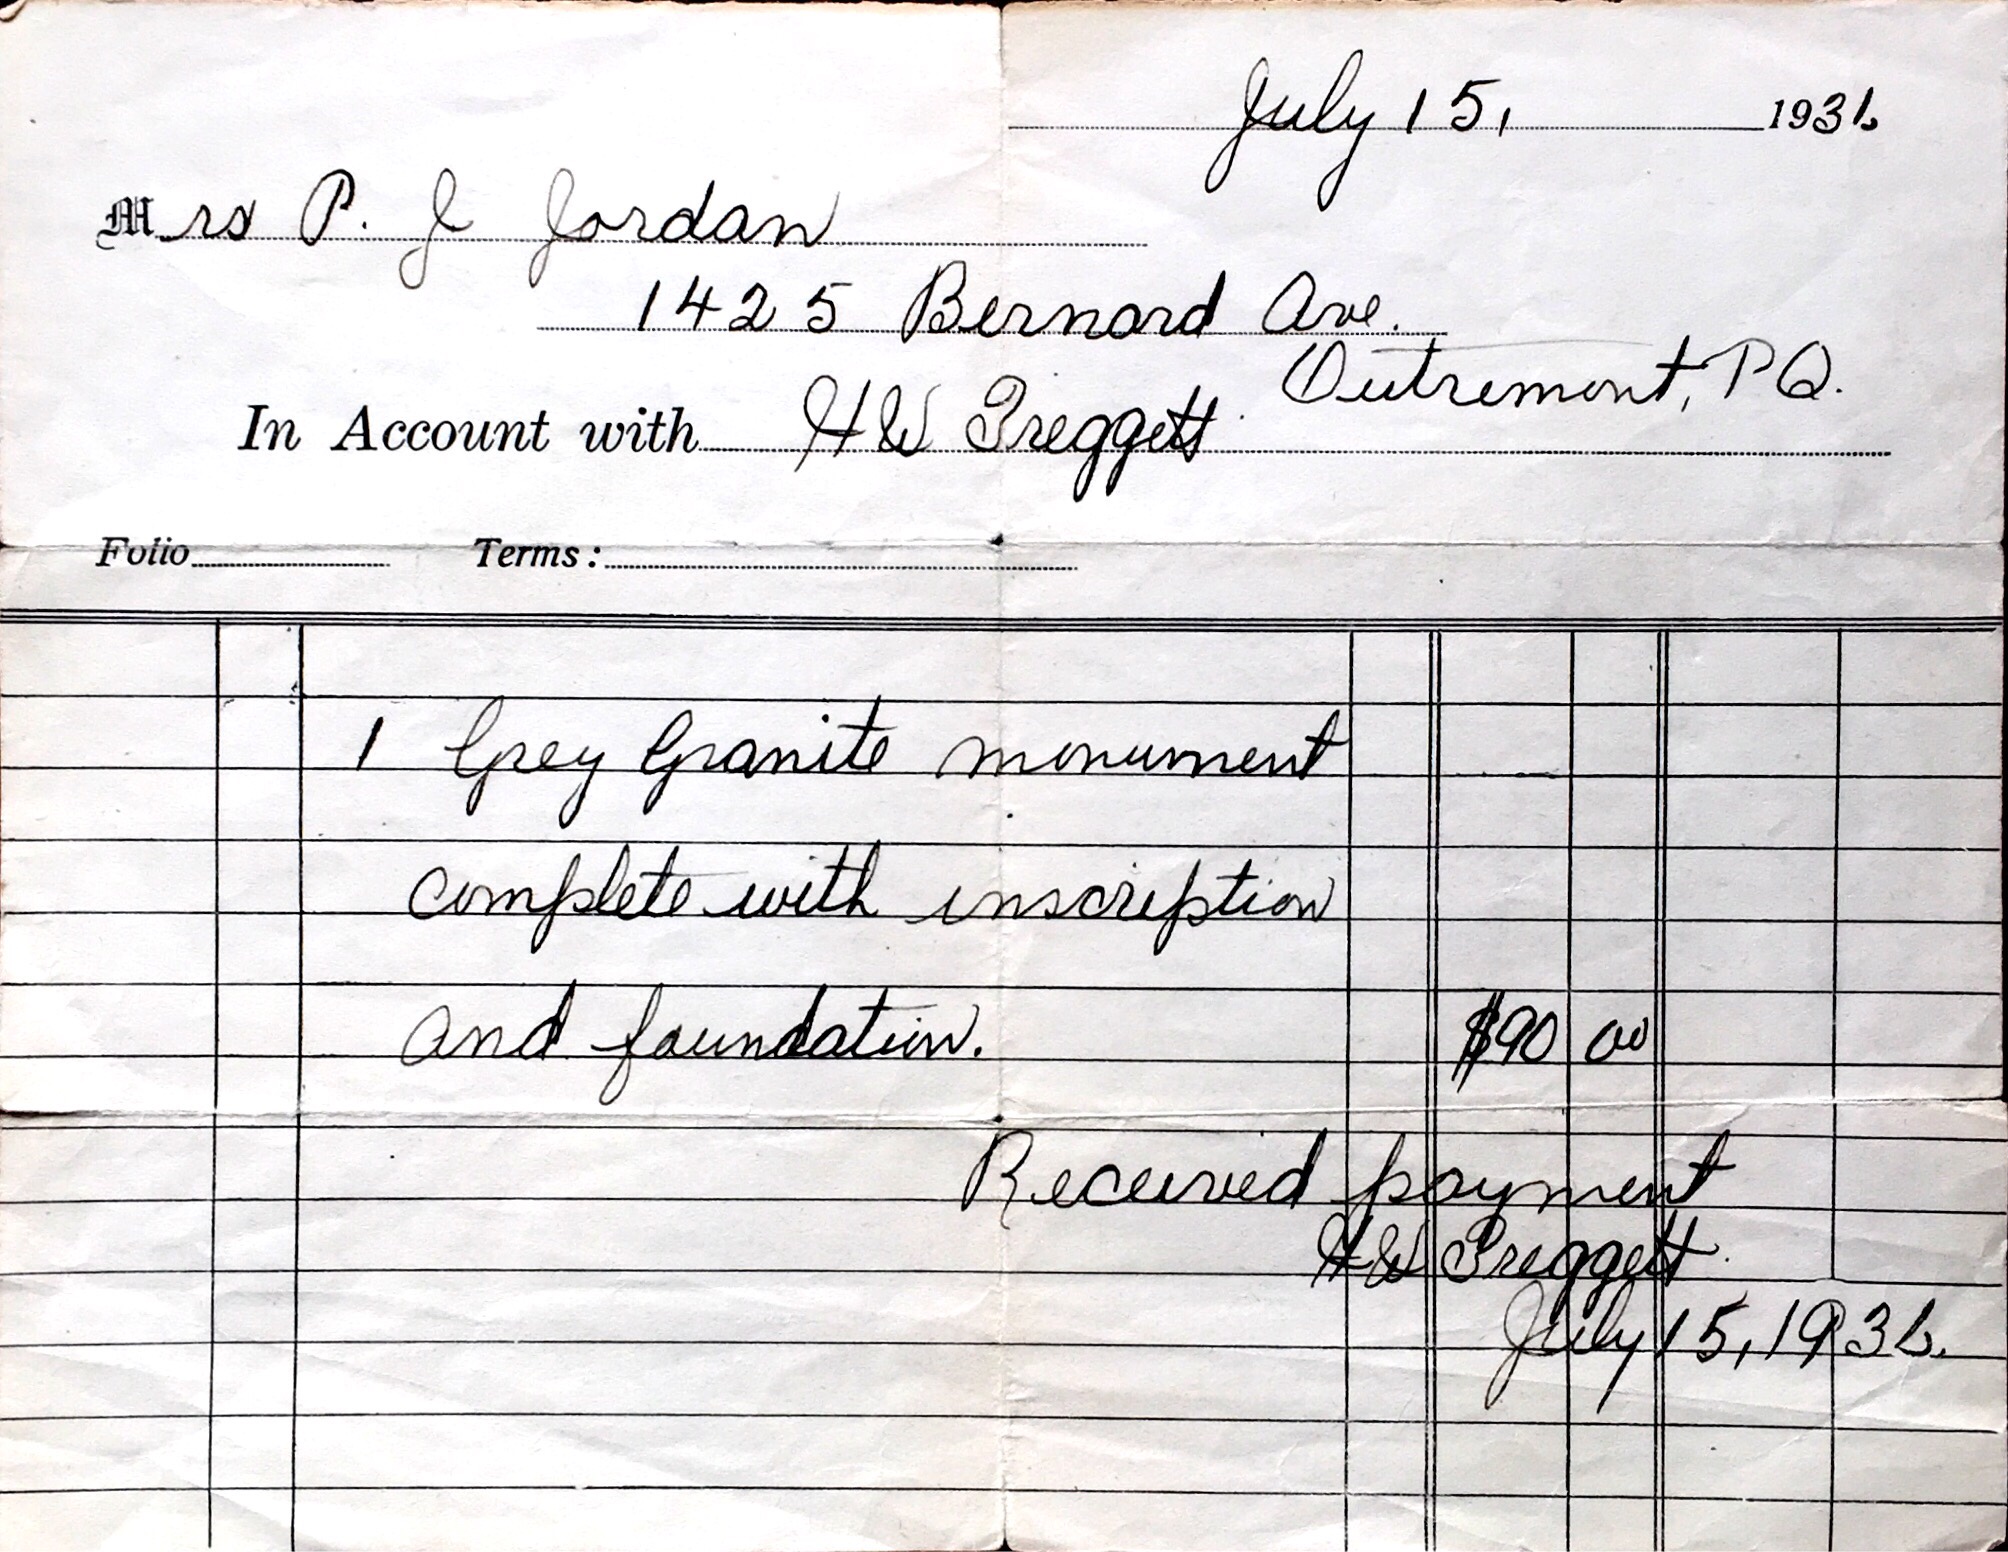 July 15, 1936
Mrs P. J Jordan
1425 Bernard Ave.
Outremont, P Q.
In Account with H W Preggett
Folio Terms:
1 Grey Granite monument
complete with inscription
and foundation. $90 00
Received payment
H W Preggett
July 15, 1936.